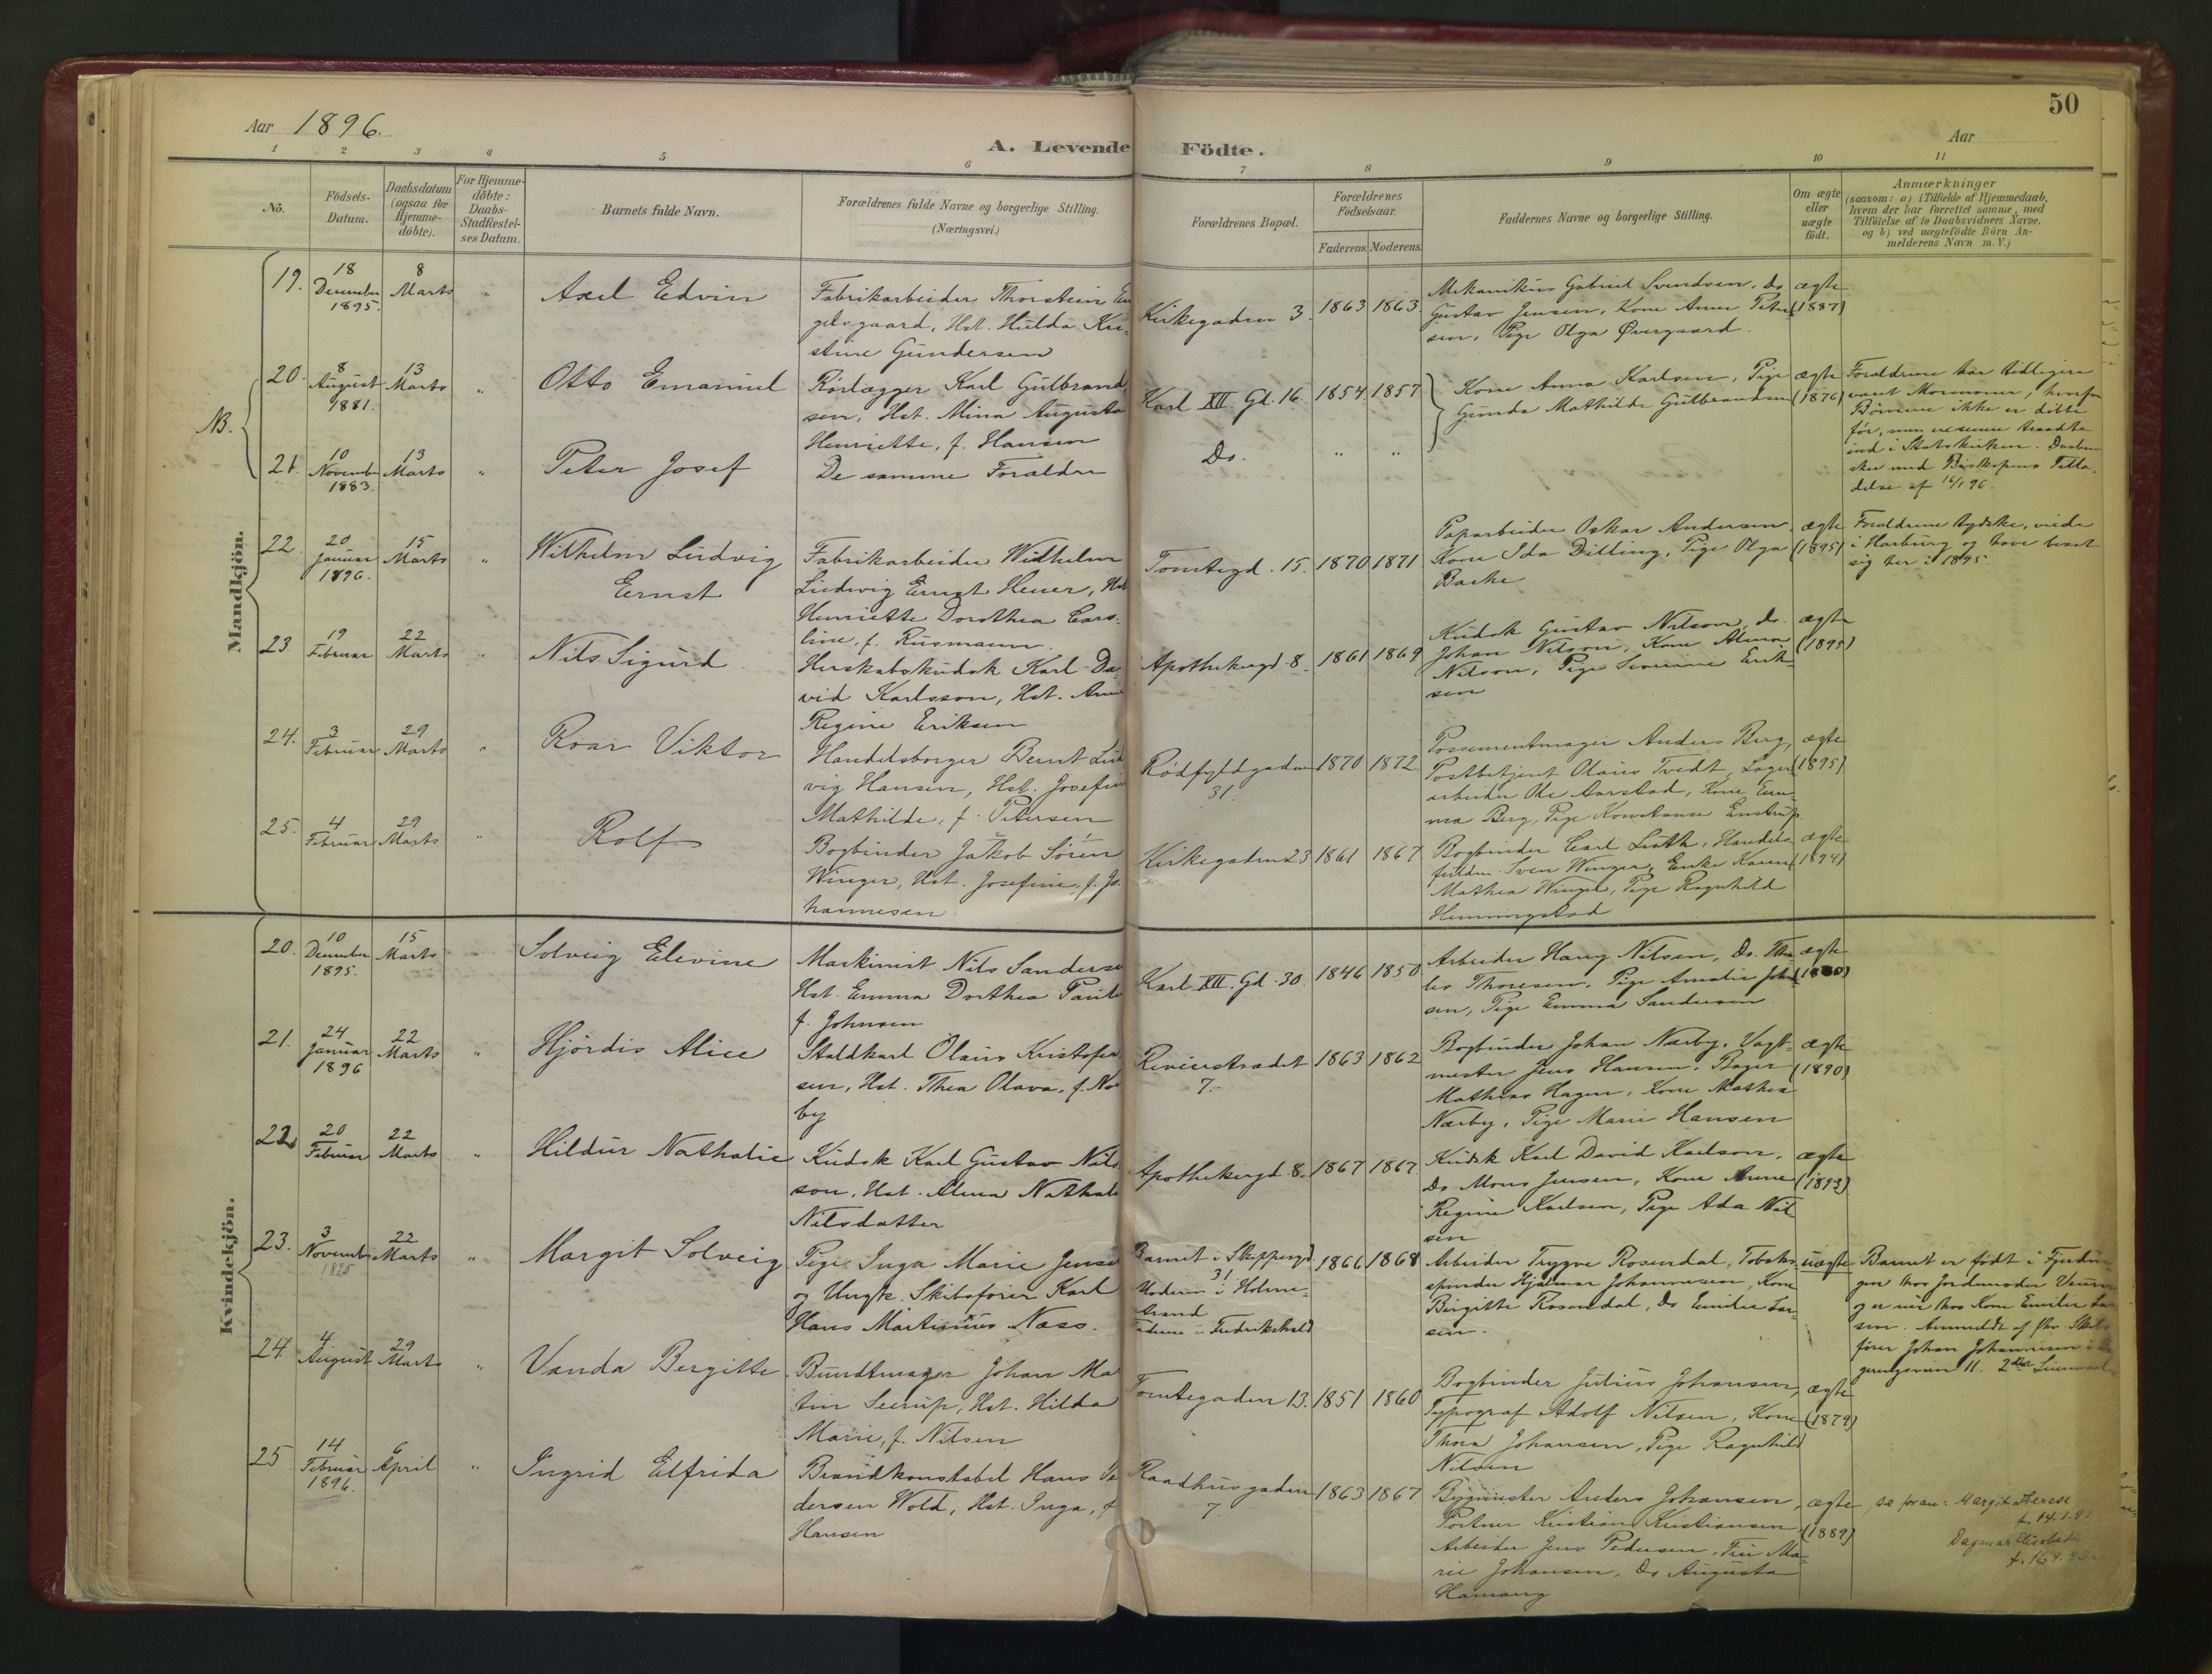 50
Aar 1896.
Aar
A. Levende Födte.
1 2 3 4 5 6 7 8 9 10 11
Nö.
Födsels-
Datum.
Daabsdatum
(ogsaa for
Hjemme-
döbte).
For Hjemme-
döbte:
Daabs-
Stadfestel-
ses Datum.
Barnets fulde Navn.
Forældrenes fulde Navne og borgerlige Stilling.
(Næringsvei.)
Forældrenes Bopæl.
Forældrenes
Födselsaar.
Faderens. Moderens.
Faddernes Navne og borgerlige Stilling.
Om ægte
eller
uægte
födt.
Anmærkninger
(saasom: a) i Tilfælde af Hjemmedaab,
hvem der har forrettet samme, med
Tilföielse af to Daabsvidners Navne.
og b) ved uægtefödte Börn An-
melderens Navn m. V.)
Mandkjön.
19.
18
December
1895.
8
Marts
"
Axel Edvin
Fabrikarbeider Thorstein En
gelsgaard, Hst. Hulda Kri-
stine Gundersen
Kirkegaden 3.
1863
1863
Mekanikus Gabriel Svendsen, Do
Gustav Jensen, Kone Anne Peter
sen, Pige Olga Øvergaard.
ægte
(1887)
NB.
20.
8
August
1881.
13
Marts
"
Otto Emanuel
Rørlægger Karl Gulbrand
sen, Hst. Mina Augusta
Henriette, f. Hansen
Karl XII Gd. 16.
1854
1857
Kone Anna Karlsen, Pige
Gunda Mathilde Gulbrandsen
ægte
(1876)
Forældrene har tidligere
været Mormoner, hvorfor
Børnene ikke er døbte
før, men ere senere traadte
ind i Statskirken. Daaben
sker med Biskopens Tilla-
delse af 16/1 96.
21.
10
Novembr
1883.
13
Marts
"
Peter Josef
De samme Forældre
Do.
"
"
22.
20
Januar
1896.
15
Marts
"
Wilhelm Ludvig
Ernst
Fabrikarbeider Wilhelm
Ludwig Ernst Heuer, Hst
Henriette Dorothea Caro-
line, f. Rusmann.
Tomtegd. 15.
1870
1871
Paparbeider Oskar Andersen
Kone Ida Dilling, Pige Olga
Bache
ægte
(1895)
Forældrene tydske, viede
i Harburg og have bosat
sig her i 1895.
23
19
Februar
22
Marts
"
Nils Sigurd
Herskabskudsk Karl Da-
vid Karlsson, Hst. Anne
Regine Eriksen
Apothekergd. 8.
1861
1869
Kudsk Gustav Nilson, do.
Johan Nilson, Kone Alma
Nilson, Pige Severine Erik-
sen
ægte
(1895)
24.
3
Februar
29
Marts
"
Roar Viktor
Handelsborger Bernt Lud
vig Hansen, Hst. Josefine
Mathilde, f. Petersen
Rødfyldgaden
31.
1870
1872
Possementmager Anders Berg,
Postbetjent Olaus Tvedt, Lager
arbeider Ole Aarstad, Kone Em-
ma Berg, Pige Konstanse Enstrup
ægte
(1895)
25.
4
Februar
29
Marts
"
Rolf
Bogbinder Jakob Sören
Winger, Hst. Josefine, f. Jo-
hannesen
Kirkegaden 23
1861
1867
Bogbinder Carl Luth, Handels
fuldm. Sven Winger, Enke Karen
Mathea Winger, Pige Ragnhild
Henningstad
ægte
(1894)
Kvindekjön.
20.
10
December
1895.
15
Marts
"
Solveig Elevine
Maskinist Nils Sanderse
Hst. Emma Dorthea Pauli
f. Johnsen
Karl XII. Gd. 30.
1846
1850
Arbeider Harry Nilsen, Do.
Thoresen, Pige Amalie Johan
sen, Pige Emma Sandersen
ægte
21.
24
Januar
1896
22
Marts
"
Hjördis Alice
Staldkarl Olaus Kristofer
sen, Hst. Thea Olava, f. Nor
by
Revierstrædet
7.
1863
1862
Bogbinder Johan Nærby, Vagt-
mester Jens Hansen, Bager
Mathias Hagen, Kone Mathea
Nærby, Pige Marie Hansen
ægte
(1890)
22.
20
Februar
22
Marts
"
Hildur Nathalie
Kudsk Karl Gustav Nils
son, Hst. Alma Nathali
Nilsdatter
Apothekergd. 8.
1867
1867
Kudsk Karl David Karlson,
Do Mons Jensen, Kone Anne
Regine Karlsen, Pige Ada Nil
sen
ægte
(1893)
23.
3
Novembr
1895
22
Marts
"
Margit Solveig
Pige Inga Marie Jense
og Ungk. Skibsfører Karl
Hans Martinius Næss.
Barnet i Skippergd
31
Moderen i Holme-
strand
Fredrikshald
1866
1868
Arbeider Trygve Rosendal, Tobaks-
spinder Hjalmar Johannesen, Kone
Birgitte Rosendal, Do Emilie Lar-
sen.
uægte
Barnet er født i Fjerdin
gen hos Jordemoder
og er nu hos Kone Emilie La
sen. Anmeldt af fhv. Skibs
fører Johan Johannesen i
11. 2den
24.
4
August
29
Marts
"
Vanda Bergitte
Bundtmager Johan Ma
tin Seerup, Hst. Hilda
Marie, f. Nilsen
Tomtegaden 13.
1851
1860
Bogbinder Julius Johansen,
Typograf Adolf Nilsen, Kone
Thora Johansen, Pige Ragnhild
Nilsen
ægte
(1879)
25
14
Februar
1896.
6
April
"
Ingrid Elfrida
Brandkonstabel Hans Pe
dersen Wold, Hst. Inga, f
Hansen
Raadhusgaden
7.
1863
1867
Bygmester Anders Johansen,
Portner Kristian Kristiansen,
Arbeider Jens Pedersen, Fru Ma-
rie Johansen, Do Augusta
Hamang
ægte
(1889)
se foran: Margit Therese
f. 14.1.9
Dagmar Elisabeth